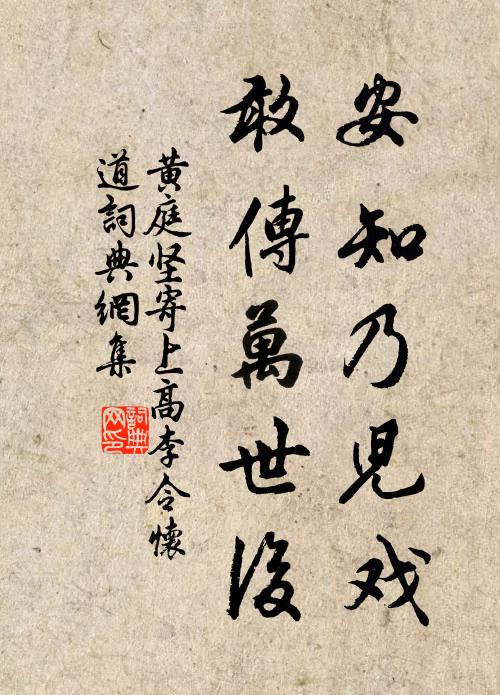 安知乃兒戏
敢傳萬世後
黄庭坚寄上高李令懷
道詞典網集
詞典
网印